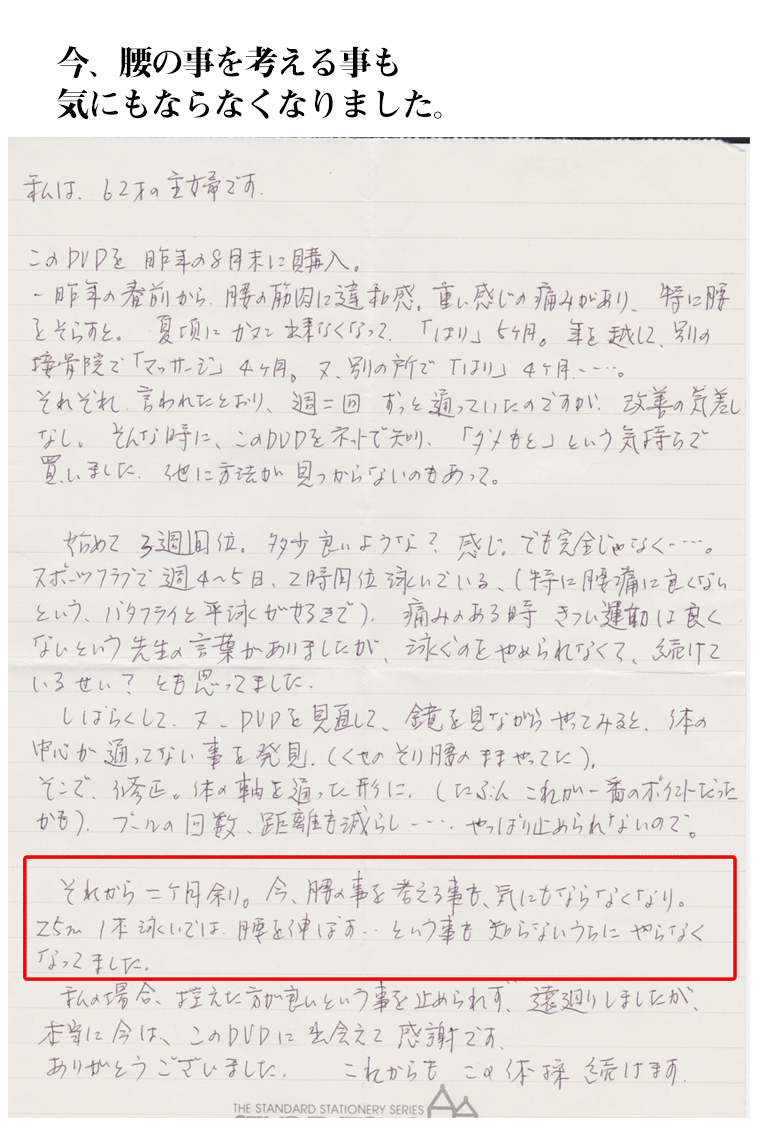 今、腰の事を考える事も
気にもならなくなりました。
私は、62才の主婦です.
このDVDを 昨年の8月末に購入。
一昨年の春前から、腰の筋肉に違和感。重い感じの痛みがあり、特に腰
をそらすと。 夏頃に ガマン 出来なくなって、「はり」5ヶ月。年を越して、別の
接骨院で「マッサージ」4ヶ月。又、別の所で「はり」4ヶ月・・・・。
それぞれ、言われたとおり、週二回 ずっと通っていたのですが、改善の気差し
なし。 そんな時に、このDVDをネットで知り、「ダメもと」という気持ちで
買いました. 他に方法が 見つからないのもあって。
始めて 3週間位。 多少良いような? 感じ。でも完全じゃなく・・・・。
スポーツクラブで 週4〜5日、2時間位泳いでいる、(特に腰痛に良くない
という、バタフライと平泳ぎが好きで). 痛みのある時 きつい運動は良く
ないという 先生の言葉がありましたが、泳ぐのをやめられなくて、続けて
いるせい? とも思ってました.
しばらくして、又、DVDを見直して、鏡を見ながら やってみると、体の
中心が 通ってない事を発見.(くせの そり腰の ままやってた).
そこで、修正。体の軸を通った形に.(たぶん これが一番のポイントだった
かも). プールの回数、距離も減らし・・・・やっぱり止められないので。
それから 二ヶ月余り。今、腰の事を考える事も、気にもならなくなり。
25m 1本泳いでは 腰を伸ばす・・という事も 知らないうちに やらなく
なってました.
私の場合、控えた方が良いという事を止められず、遠廻りしましたが、
本当に今は、このDVDに出会えて 感謝です.
ありがとうございました. これからも この体操 続けます.
THE STANDARD STATIONERY SERIES